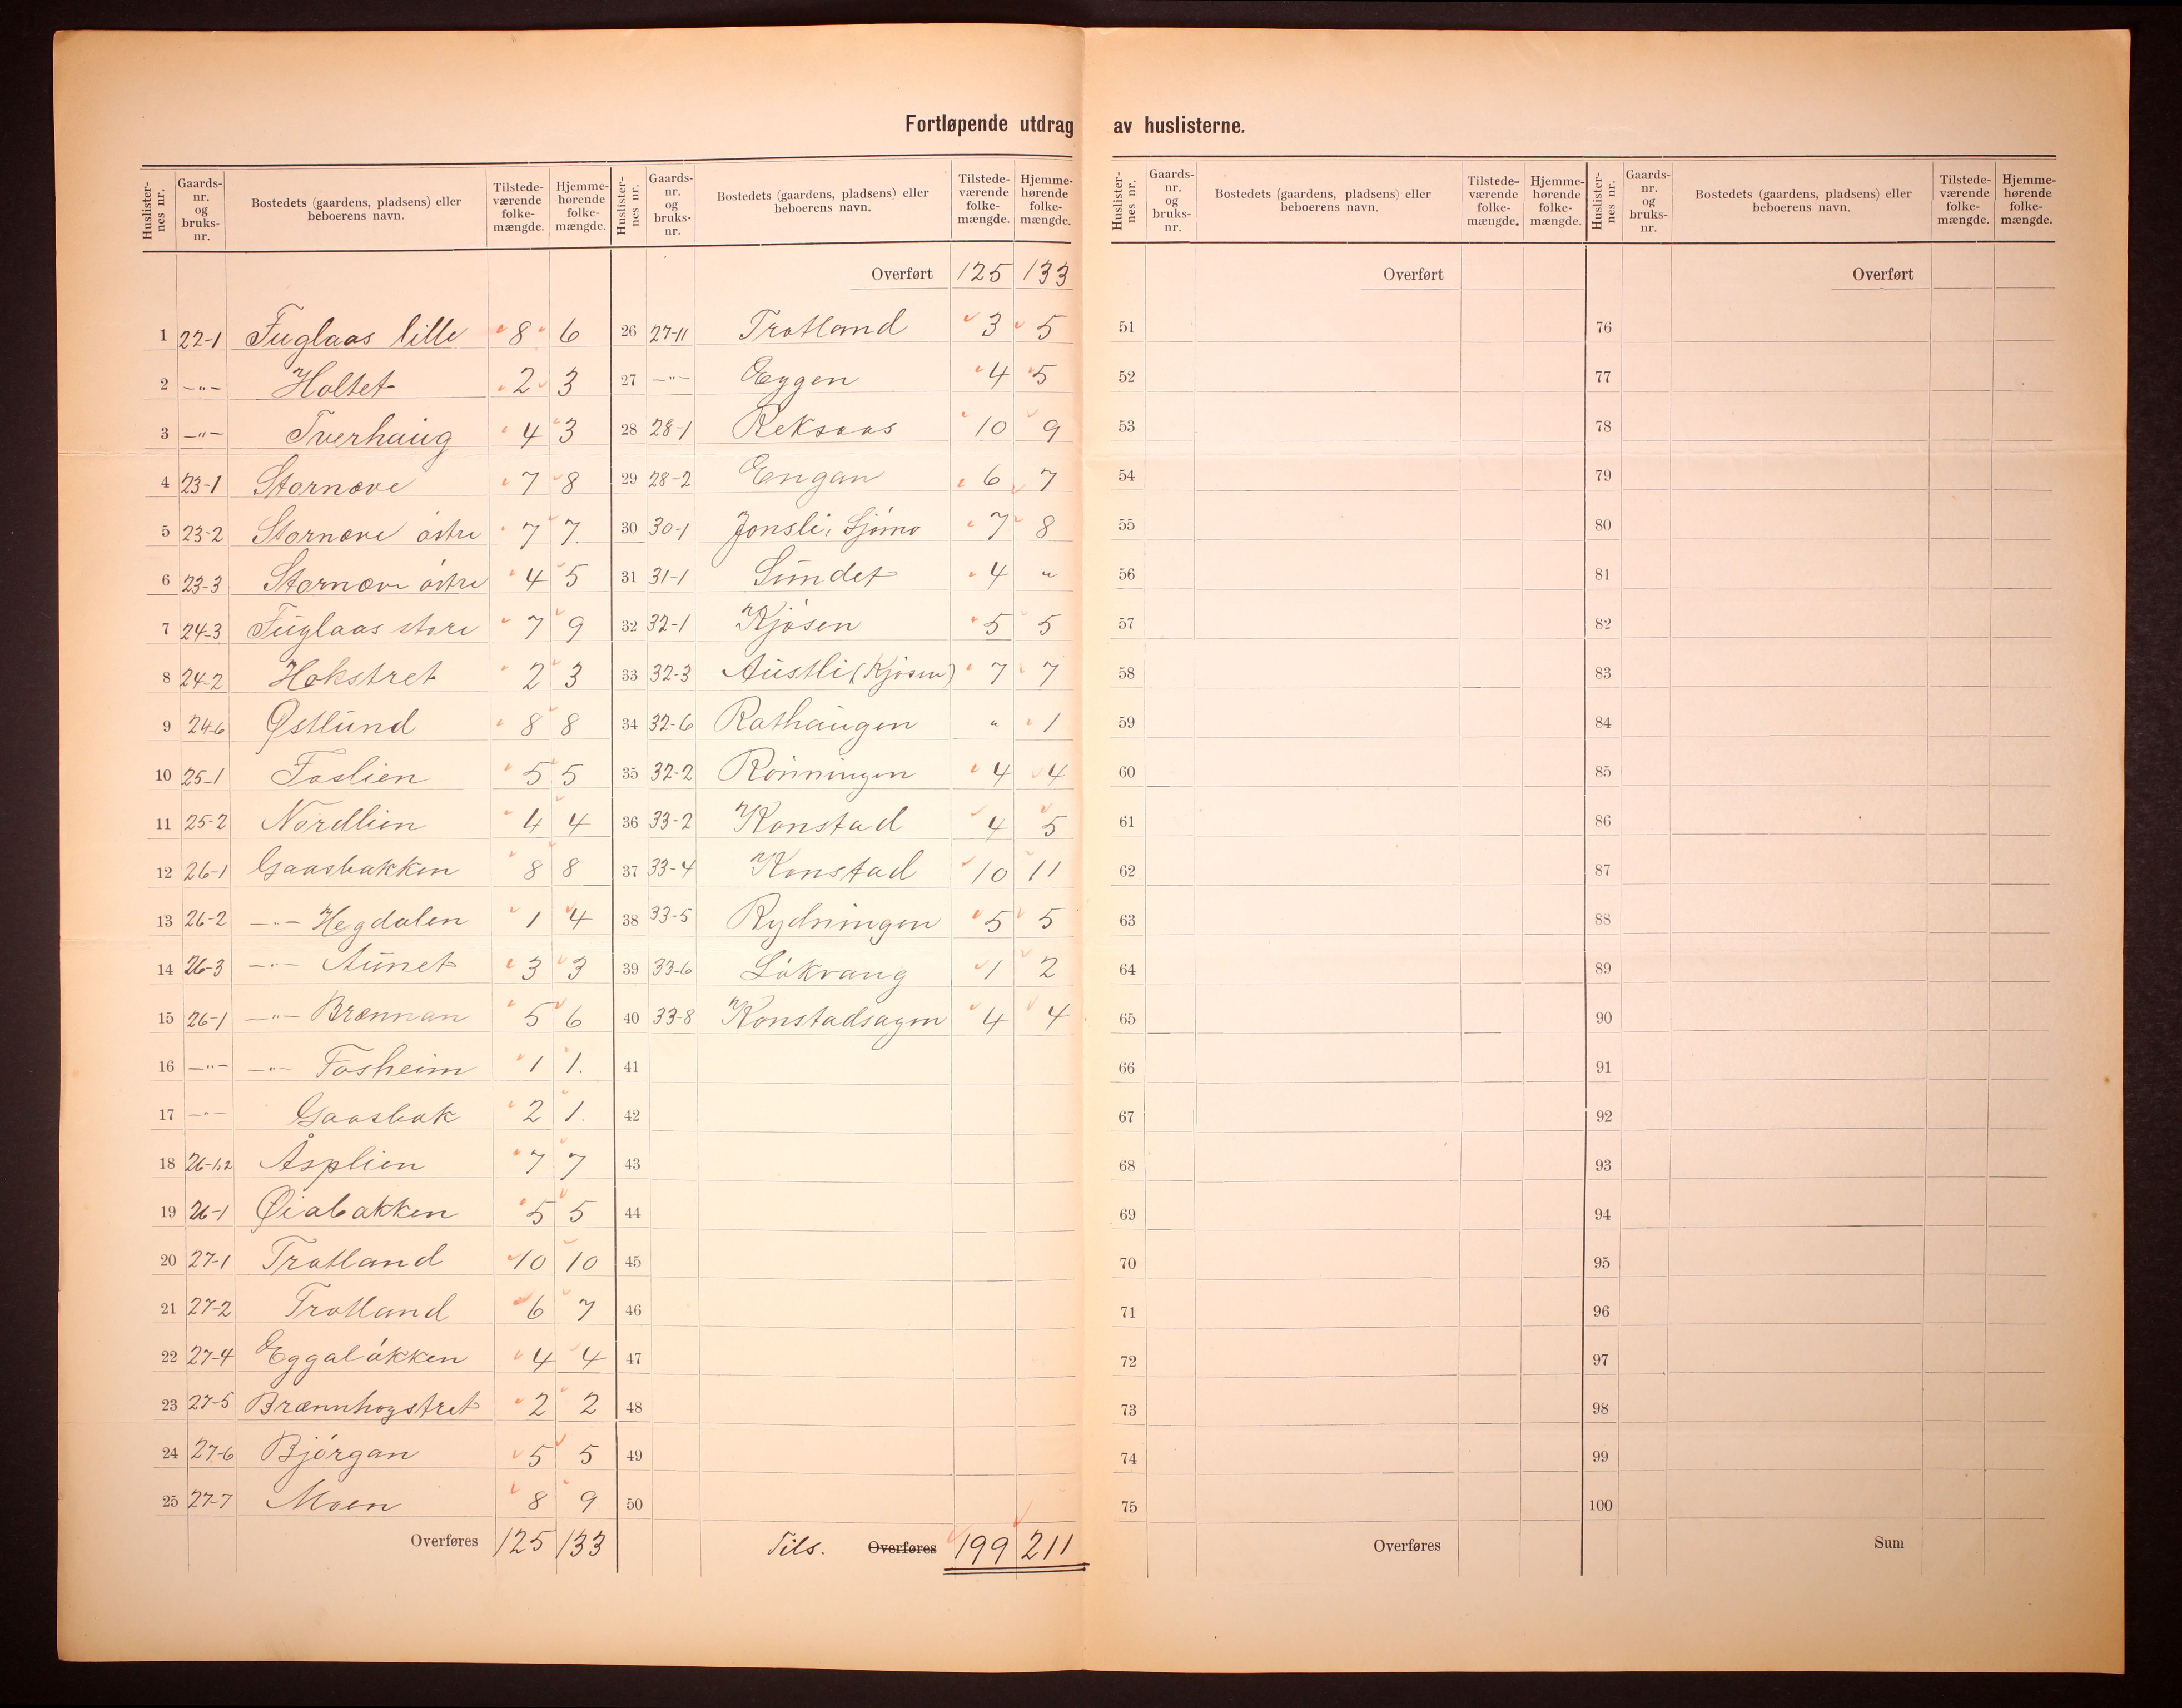 Fortløpende utdrag av huslisterne.
Huslisternes nr. | Gaards-nr. og bruks-nr. | Bostedets (gaardens, pladsens) eller beboerens navn. | Tilstedeværende folkemængde. | Hjemmehørende folkemængde.
1 22-1 Fuglaas lille 8 6
2 —"— Holtet 2 3
3 —"— Tverhaug 4 3
4 23-1 Stornæve 7 8
5 23-2 Stornæve östre 7 7.
6 23-3 Stornæve östre 4 5
7 24-3 Fuglaas store 7 9
8 24-2 Hokstret 2 3
9 24-6 Østlund 8 8
10 25-1 Foslien 5 5
11 25-2 Nordlien 4 4
12 26-1 Gaasbakken 8 8
13 26-2 —"— Hegdalen 1 4
14 26-3 —"— Aunet 3 3
15 26-1 —"— Brænnan 5 6
16 —"— —"— Fosheim 1 1.
17 —"— Gaasbak 2 1.
18 26-1,2 Åsplien 7 7
19 26-1 Øiabakken 5 5
20 27-1 Trotland 10 10
21 27-2 Trotland 6 7
22 27-4 Eggaløkken 4 4
23 27-5 Brænnhogstret 2 2
24 27-6 Bjórgan 5 5
25 27-7 Moen 8 9
Overføres 125 133
Huslisternes nr. | Gaards-nr. og bruks-nr. | Bostedets (gaardens, pladsens) eller beboerens navn. | Tilstedeværende folkemængde. | Hjemmehørende folkemængde.
Overført 125 133
26 27-11 Trotland 3 5
27 —"— Eggen 4 5
28 28-1 Reksaas 10 9
29 28-2 Engan 6 7
30 30-1 Jonsli, Sjömo 7 8
31 31-1 Sundet 4 "
32 32-1 Kjösen 5 5
33 32-3 Austli (Kjösen) 7 7
34 32-6 Rothaugen " 1
35 32-2 Rönningen 4 4
36 33-2 Konstad 4 5
37 33-4 Konstad 10 11
38 33-5 Rydningen 5 5
39 33-6 Lökvang 1 2
40 33-8 Konstadsagen 4 4
41
42
43
44
45
46
47
48
49
50
Tils. Overføres 199 211
Huslisternes nr. | Gaards-nr. og bruks-nr. | Bostedets (gaardens, pladsens) eller beboerens navn. | Tilstedeværende folkemængde. | Hjemmehørende folkemængde.
Overført
51
52
53
54
55
56
57
58
59
60
61
62
63
64
65
66
67
68
69
70
71
72
73
74
75
Overføres
Huslisternes nr. | Gaards-nr. og bruks-nr. | Bostedets (gaardens, pladsens) eller beboerens navn. | Tilstedeværende folkemængde. | Hjemmehørende folkemængde.
Overført
76
77
78
79
80
81
82
83
84
85
86
87
88
89
90
91
92
93
94
95
96
97
98
99
100
Sum